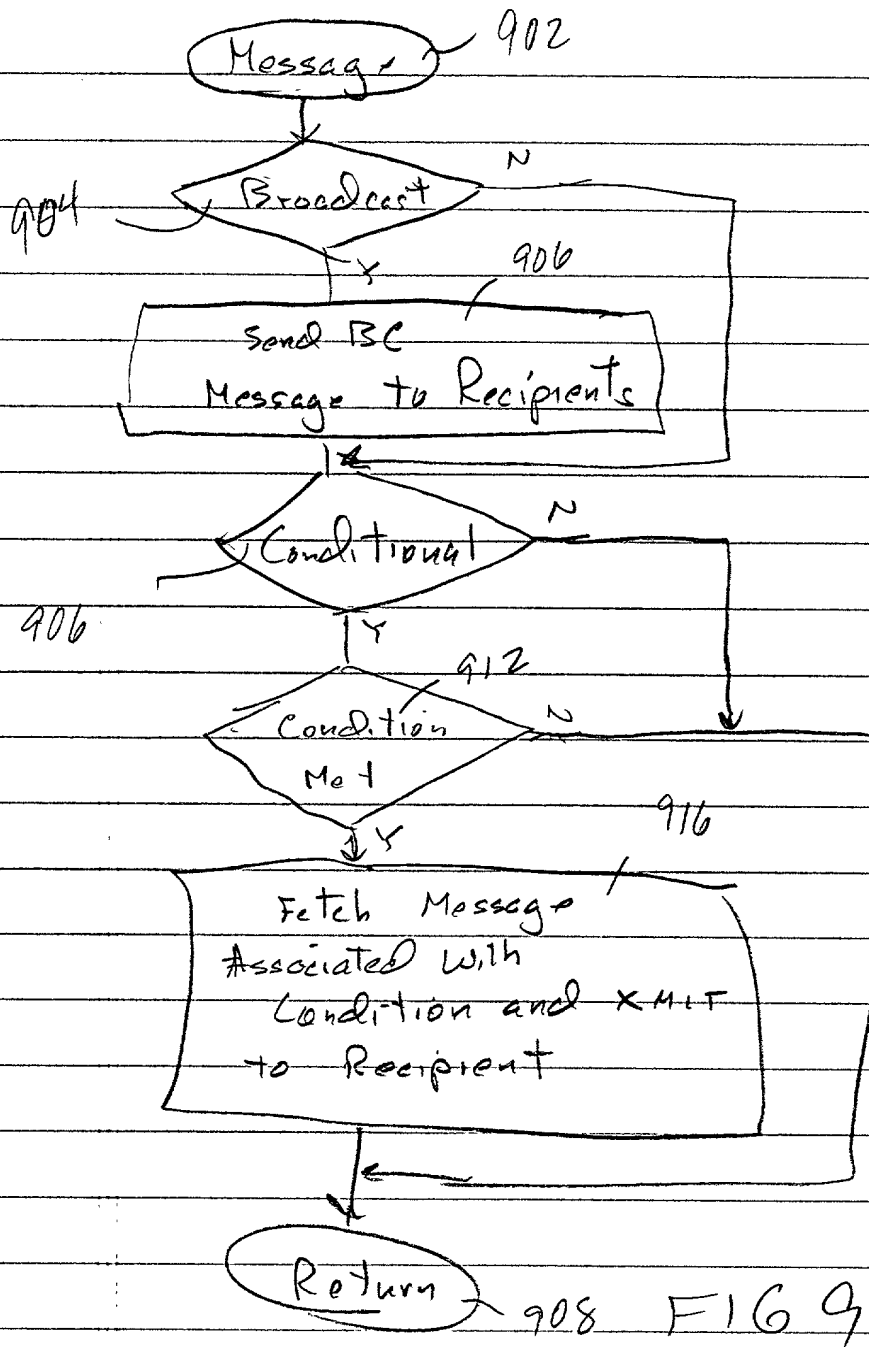 902
Message
N
Broadcast
904
Y
906
Send BC
Message to Recipients
N
Conditional
906
Y
912
Condition
Met
N
Y
916
Fetch Message
Associated with
Condition and XMIT
to Recipient
Return
908
FIG 9